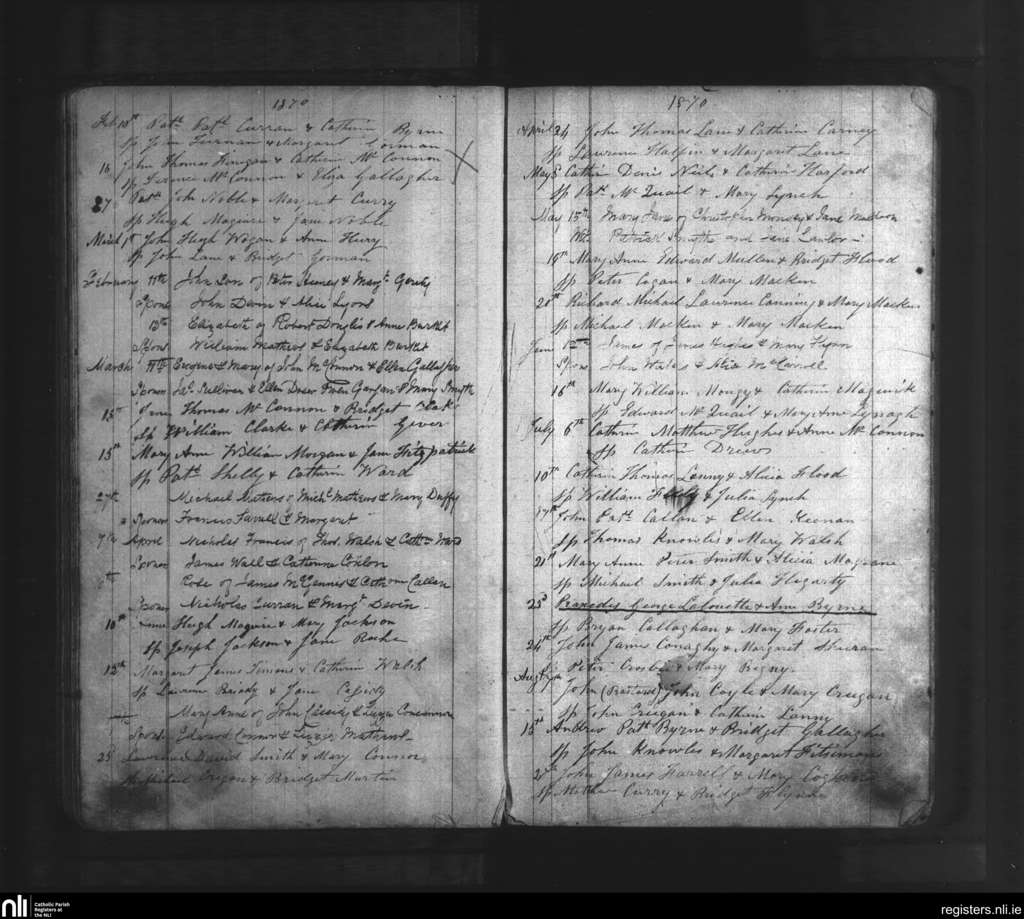 1870
Feb 10th Patk Patk Curran & Cathrin Byrne
Sp Jim & Margaret Gorman
16 John Thomas Finigan & Cathrin McConnon
Sp Terence McConnon & Eliza Gallagher
27 Patk John Noble & Margret Curry
Sp Hugh Maguire & Jane Noble
March 1st John Hugh Wogan & Anne
Sp John Lane & Bridget Gorman
February 11th John Son of Peter & Margt
Spons John Devin & Alice Lyons
13th Elizabeth of Robert Douglis & Anne
Spons William Mathews & Elizabeth
March 11th Eugene & Mary of John McConnon & Ellen Gallagher
Sponsors Sullivan & Ellen Owen & Mary Smyth
13th Thomas McConnon & Bridget
Sp William Clarke & Cathrin
15th Mary Anne William Morgan & Jane Fitzpatrick
Sp Patk Shelly & Cathrin Ward
27th Michael Mathews of Michl Mathews & Mary Duffy
Sponsors Francis Farrell & Margaret
7th April Nicholas Francis of Thos. Walsh & Cathn Ward
Sponsors James Wall & Catherine Conlon
th Rose of James McGennis & Cathrine Callan
Sponsors Nicholas Curran & Margt Devin
10th Anne Hugh Maguire & Mary Jackson
Sp Joseph Jackson & Jane Roche
12th Margaret James & Cathrin Walsh
Sp Laurence Briody & Jane Cassidy
Mary Anne of John Cassidy &
Sponsors Edward Connor & Mathews
25 Lawrence David Smith & Mary Connor
Sp & Bridget Martin
1870.
April 24 John Thomas Lane & Cathrin Carney
Sp Lawrence Halpin & Margaret Lane
May 8 Cathrin Denis Neil & Cathrin Harford
Sp Patk McQuail & Mary Lynch
May 15th Mary Jane of Christopher & Jane Muldoon
Wts Patrick Smyth and Jane Lawlor
19th Mary Anne Edward Mullen & Bridget Flood
Sp Peter Cogan & Mary Macken
20th Richard Michael Lawrence Canning & Mary Macken
Sp Michael Macken & Mary Macken
June 12th James of James & Mary Flynn
Spons John & McCarroll
16th Mary William & Cathrin
Sp Edward McQuail & Mary Anne Lysaght
July 6th Cathrin Matthew Hughes & Anne McConnon
Sp Cathrin Drew
10th Cathrin Thomas Lanny & Alicia Flood
Sp William & Julia Lynch
17th John Patk Callan & Ellen Keenan
Sp Thomas Knowles & Mary Walsh
21st Mary Anne Peter Smith & Alicia
Sp Michael Smith & Julia Hegarty
23d Praxedis George Labouette & Anne Byrne
Sp Bryan Callaghan & Mary Foster
24th John James Conaghy & Margaret Sheeran
Sp Peter & Mary
August John (Bastard) John Coyle & Mary Creegan
Sp John Creegan & Cathrin Lanny
15th Andrew Patk Byrne & Bridget Gallagher
Sp John Knowles & Margaret Fitsimons
20th John James Farrell & Mary
Sp Curry & Bridget Flynn
nli Catholic Parish
Registers at
the NLI
registers.nli.ie